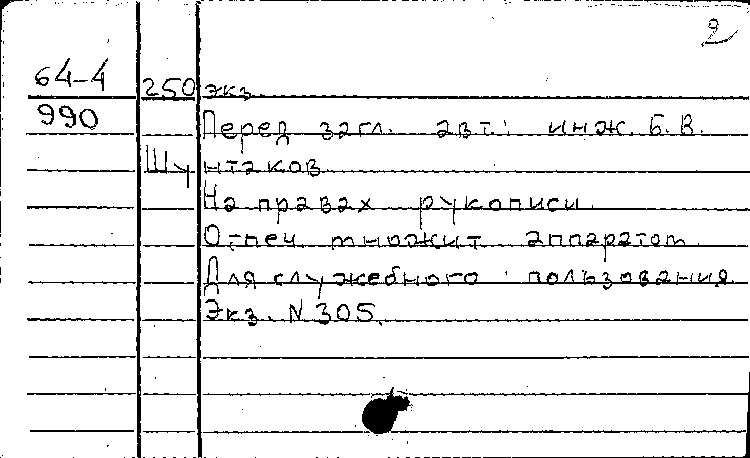 2
64-4 250 экз.
990
Перед загл. авт.: инж. Б. В.
Шунтаков
На правах рукописи
Отпеч. множит аппаратом
Для служебного пользования
Экз. N 305.